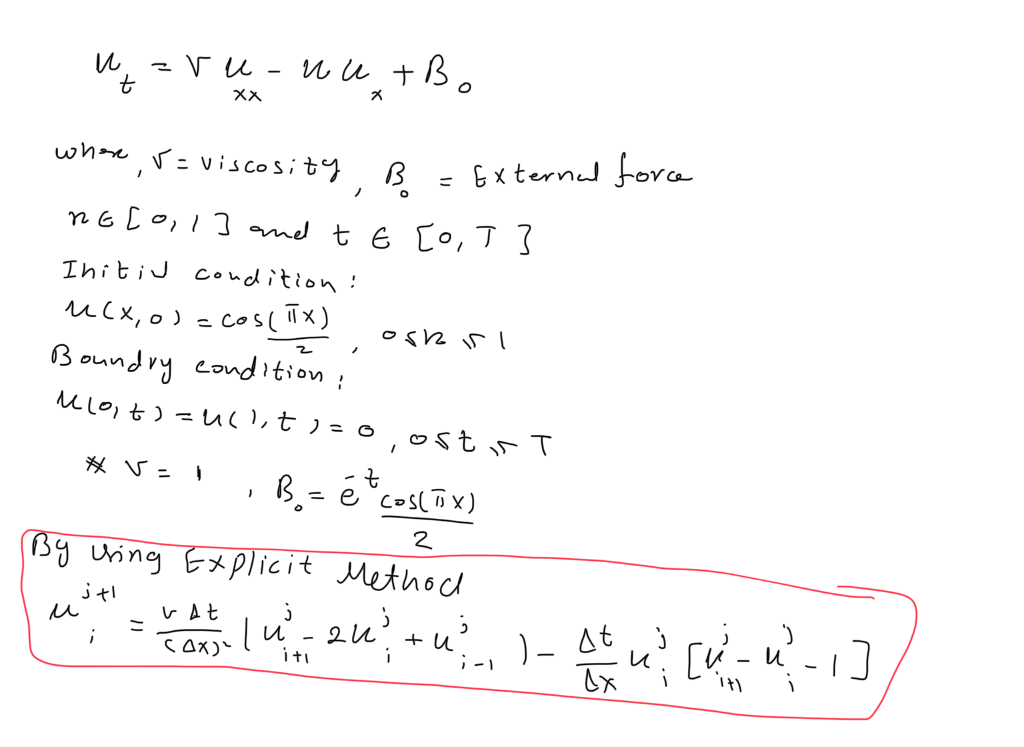 u_t = ν u_xx - u u_x + B_0
where, ν = viscosity, B_0 = External force
x ∈ [0, 1] and t ∈ [0, T]
Initial condition:
u(x, 0) = cos(πx)/2, 0 ≤ x ≤ 1
Boundry condition:
u(0, t) = u(1, t) = 0, 0 ≤ t ≤ T
* ν = 1, B_0 = e^-t cos(πx)/2
By using Explicit Method
u_i^{j+1} = νΔt/(Δx)² (u_{i+1}^j - 2u_i^j + u_{i-1}^j) - Δt/Δx u_i^j [u_{i+1}^j - u_i^j - 1]